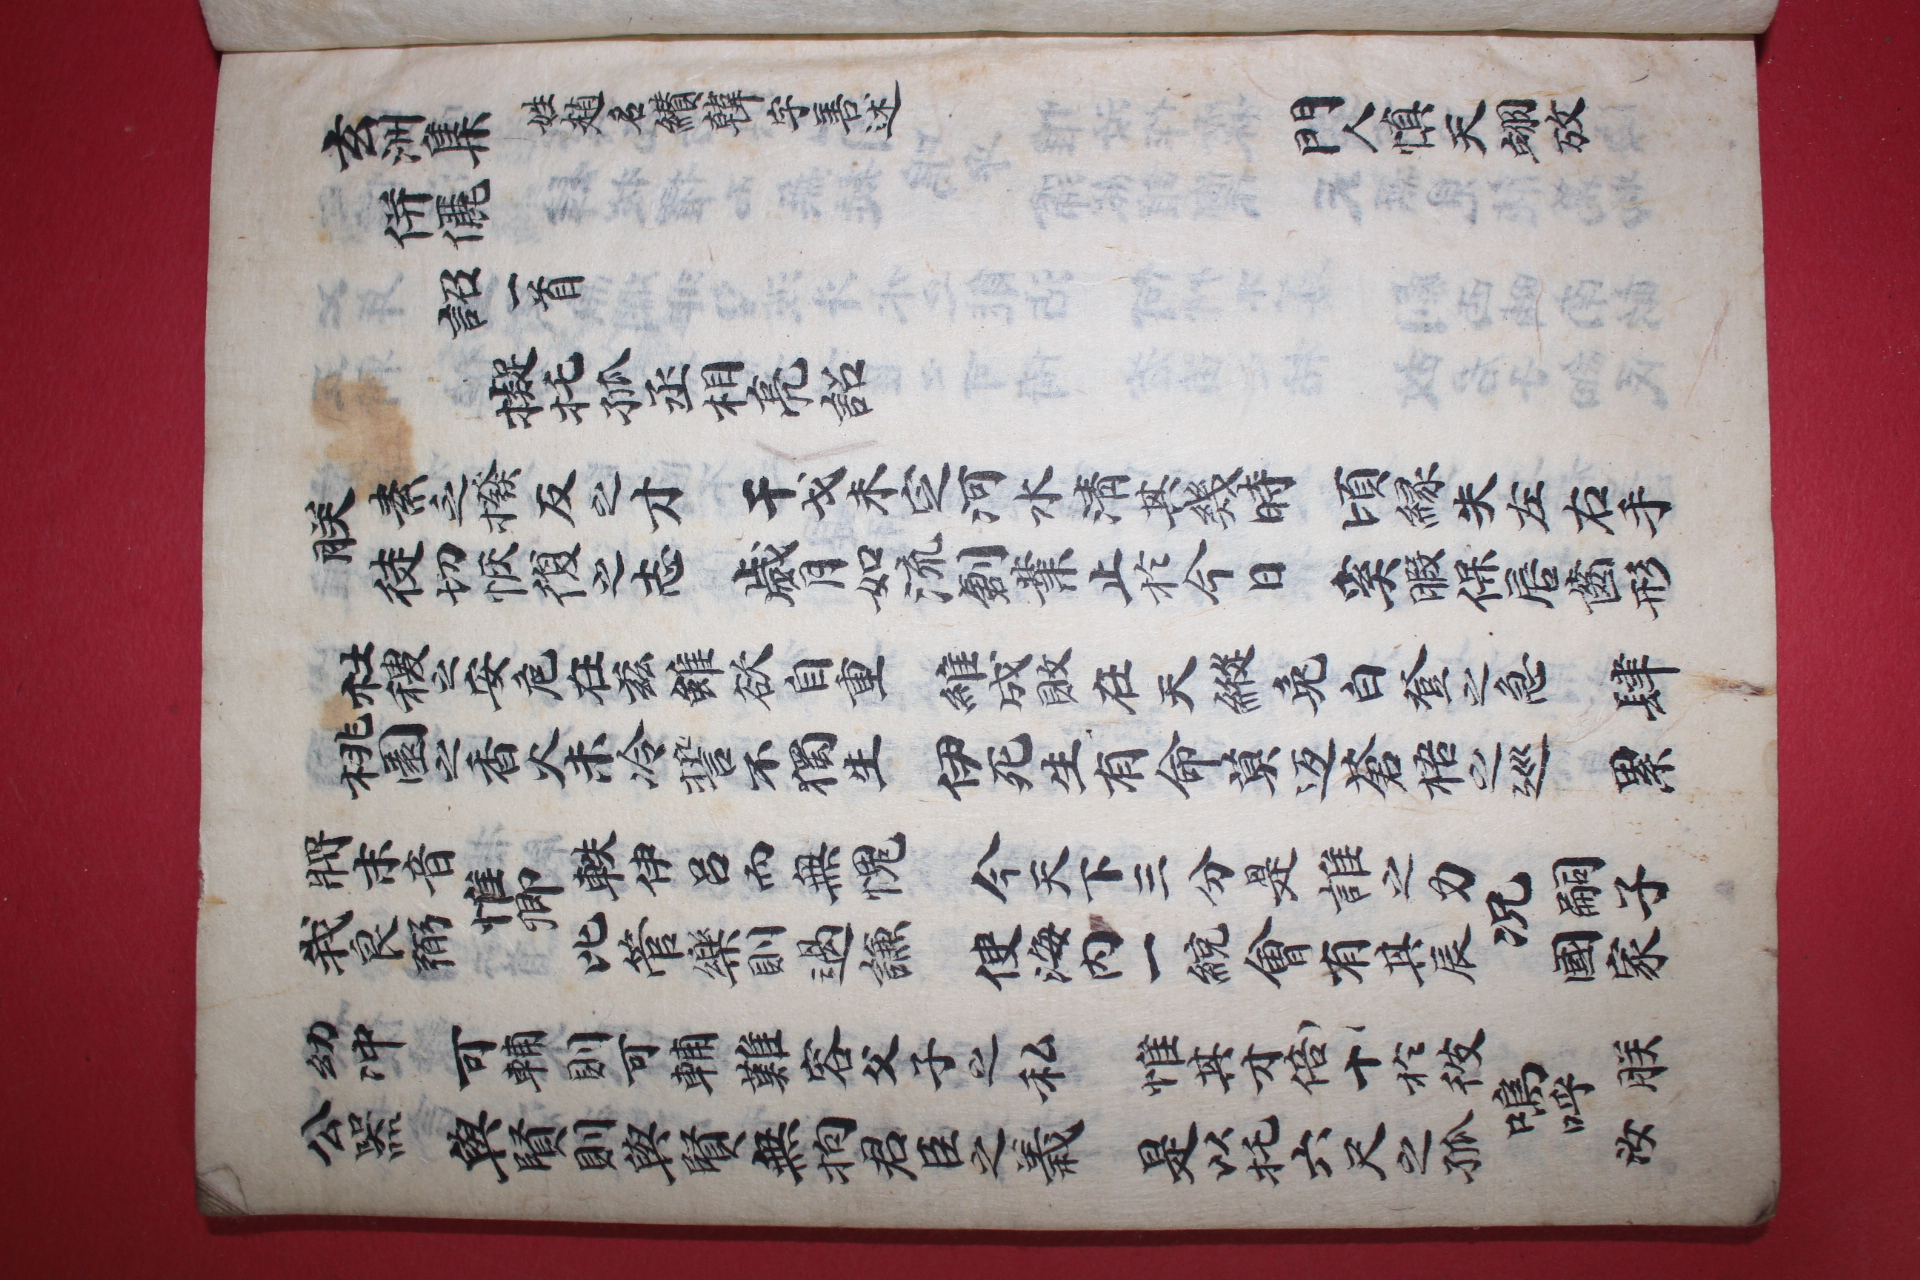 玄洲集 姓趙名纘韓字善述 門人愼天翊攷
併儷
詔一首
擬托孤丞相亮詔
朕 素乏撥反之才 干戈未定河水清其幾時 頃緣失左右手
徒切恢復之志 歲月如流刱業止於今日 奚暇保居齒形
社稷之安危在玆雖欲自重 維成敗在天縱免白登之急 肆
桃園之香火未冷誓不獨生 伊死生有命莫返蒼梧之巡 累
將末音 惟卿 軼伊呂而無愧 今天下三分是誰之力 况 嗣子
我良弼 比管樂則過謙 使海內一統會有其辰 國家
幼冲 可輔則可輔難容父子之私 惟其才倍十於彼 嗚呼 朕
公器 與賢則與賢無拘君臣之義 是以托六尺之孤 汝